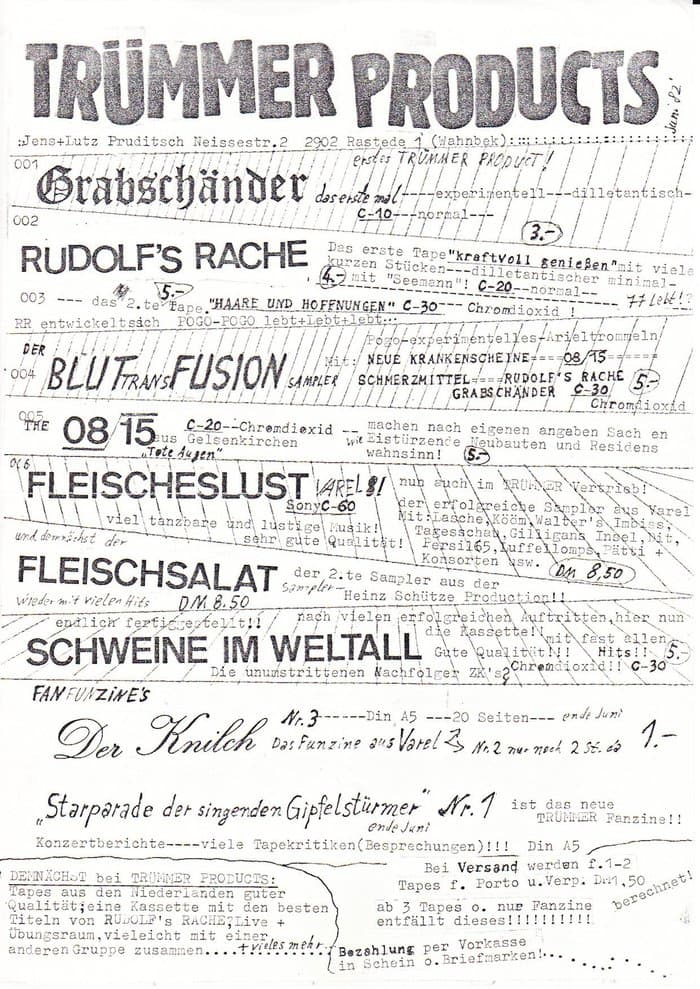 TRÜMMER PRODUCTS
Juni 82'
Jens+Lutz Pruditsch Neissestr.2 2902 Rastede 1 (Wahnbek):::::::::::
001
erstes TRÜMMER PRODUCT!
Grabschänder das erste mal----experimentell---dilletantisch-
C-10---normal---
3.-
002
RUDOLF'S RACHE
Das erste Tape"kraftvoll genießen"mit viele
kurzen Stücken---dilletantischer minimal-
4.- mit "Seemann"! C-20--normal--
003 --- das 2.te Tape "HAARE UND HOFFNUNGEN" C-30 -- Chromdioxid !
5.-
77 Lebt!?
RR entwickeltsich POGO-POGO lebt+Lebt+lebt...
DER
004 BLUTTRANSFUSION SAMPLER
Pogo-experimentelles-Arieltrommeln
Mit: NEUE KRANKENSCHEINE====08/15====
SCHMERZMITTEL====RUDOLF'S RACHE
GRABSCHÄNDER C-30
5.-
Chromdioxid
005
THE 08/15
C-20--Chromdioxid --
aus Gelsenkirchen
"Tote Augen"
machen nach eigenen angaben Sach en
wie Eistürzende Neubauten und Residens
wahnsinn! 5.-
006
FLEISCHESLUST VAREL 81
Sony C-60
nun auch im TRÜMMER Vertrieb!
der erfolgreiche Sampler aus Varel
viel tanzbare und lustige Musik!
sehr gute Qualität!
Mit:Lasche,Kööm,Walter's Imbiss,
Tagesschau,Gilligans Insel,Nit,
Persil65,Luffellomps,Pätti +
Konsorten usw. DM 8,50
und demnächst der
FLEISCHSALAT
sampler
der 2.te Sampler aus der
Heinz Schütze Produktion!!
wieder mit vielen Hits DM 8.50
endlich fertiggestellt!!
nach vielen erfolgreichen Auftritten,hier nun
die Kassette!!
SCHWEINE IM WELTALL
mit fast allen
Gute Qualität!!! Hits!! 5.-
Chromdioxid!! C-30
Die unumstrittenen Nachfolger ZK's?
FANFUNZINE'S
Der Knilch Nr.3------Din A5 ---20 Seiten--- ende Juni
Das Funzine aus Varel Nr.2 nur noch 2 St. da
1.-
"Starparade der singenden Gipfelstürmer" Nr.1
ende Juni
ist das neue
TRÜMMER Fanzine!!
Konzertberichte----viele Tapekritiken(Besprechungen)!!! Din A5
DEMNÄCHST bei TRÜMMER PRODUCTS:
Tapes aus den Niederlanden guter
Qualität;eine Kassette mit den besten
Titeln von RUDOLF's RACHE?Live +
Übungsraum,vieleicht mit einer
anderen Gruppe zusammen....+vieles mehr..
Bei Versand werden f.1-2
Tapes f. Porto u.Verp. DM1,50
berechnet!
ab 3 Tapes o. nur Fanzine
entfällt dieses!!!!!!!!!!
Bezahlung per Vorkasse
in Schein o.Briefmarken!..